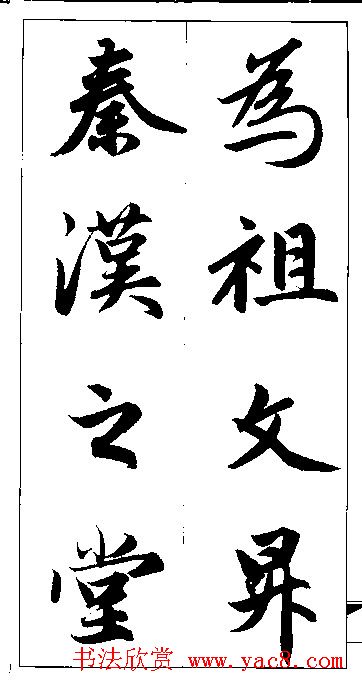 為祖文昇
秦漢之堂
书法欣赏 www.yac8.com